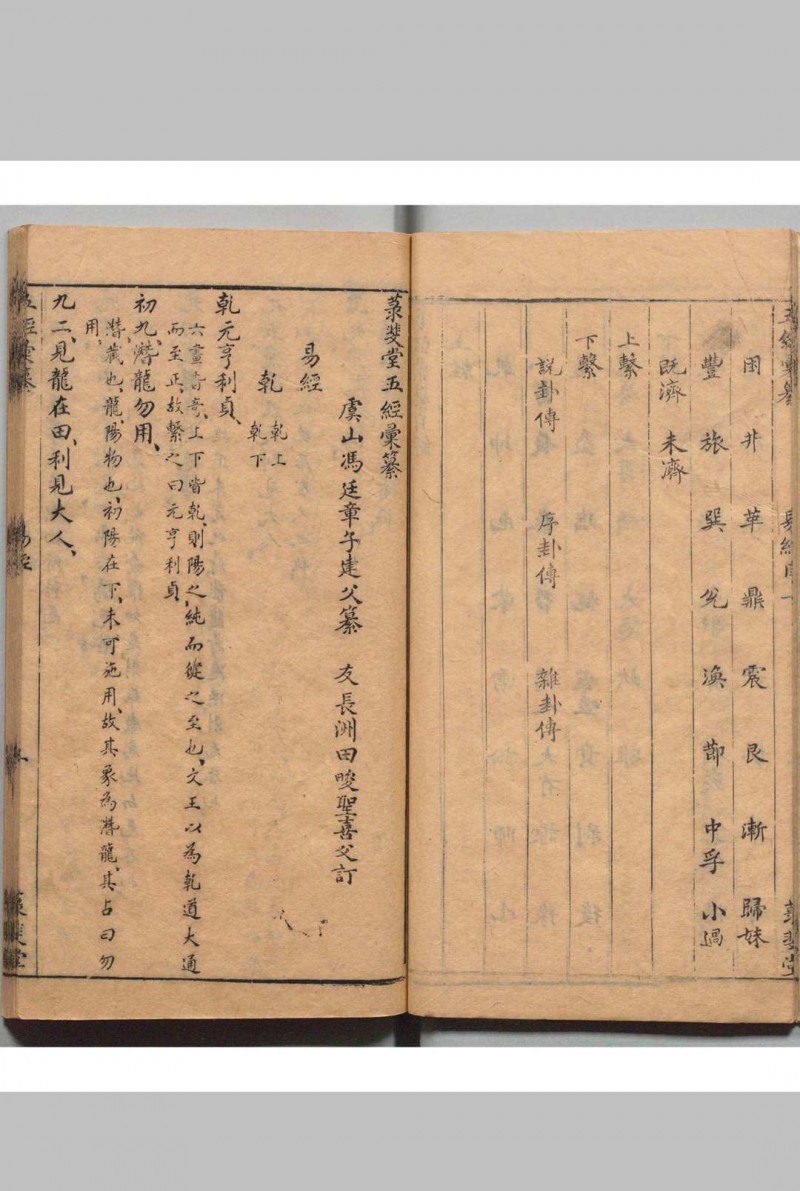 困 井 革 鼎 震 艮 漸 歸妹
豐 旅 巽 兌 渙 節 中孚 小過
既濟 未濟
上繫
下繫
說卦傳 序卦傳 雜卦傳
菉斐堂五經彙纂
虞山馮廷章子建父纂 友長洲田畯聖喜父訂
易經
乾 乾上
乾下
乾元亨利貞、
六畫皆奇、上下皆乾、則陽之純而健之至也、文王以為乾道大通
而至正、故繫之曰元亨利貞、
初九、潛龍勿用、
潛、藏也、龍、陽物也、初陽在下、未可施用、故其象為潛龍、其占曰勿
用、
九二、見龍在田、利見大人、